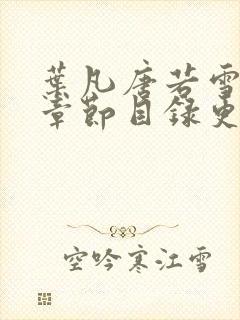 葉凡唐若雪
章節目錄更
空吟寒江雪